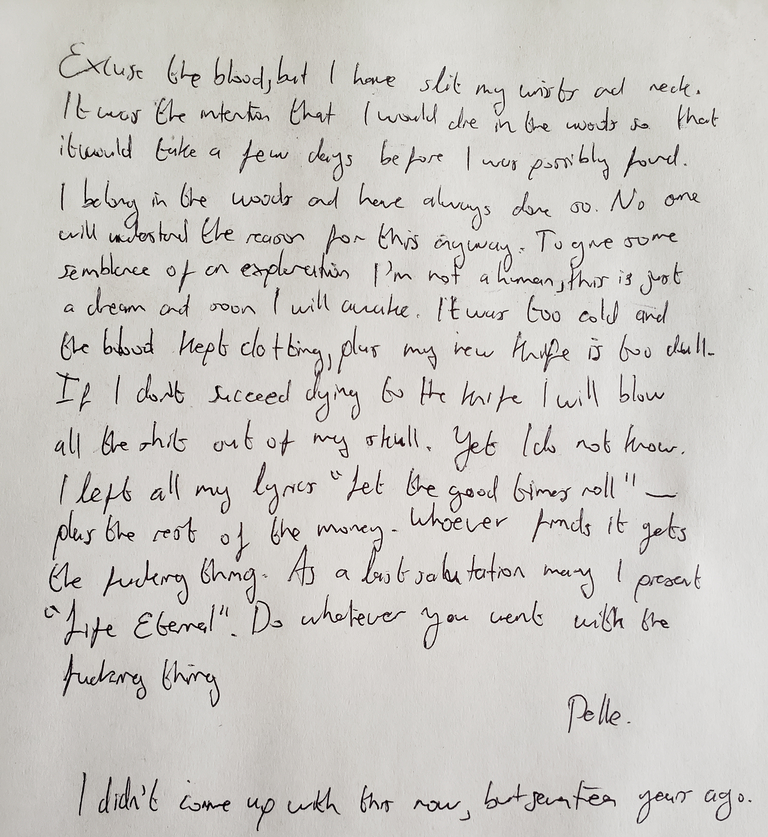 Excuse the blood, but I have slit my wrists and neck.
It was the intention that I would die in the woods so that
it would take a few days before I was possibly found.
I belong in the woods and have always done so. No one
will understand the reason for this anyway. To give some
semblance of an explanation I'm not a human, this is just
a dream and soon I will awake. It was too cold and
the blood kept clotting, plus my new knife is too dull.
If I don't succeed dying to the knife I will blow
all the shit out of my skull. Yet I do not know.
I left all my lyrics "Let the good times roll" —
plus the rest of the money. Whoever finds it gets
the fucking thing. As a last salutation may I present
"Life Eternal". Do whatever you want with the
fucking thing
Pelle.
I didn't come up with this now, but seventeen years ago.